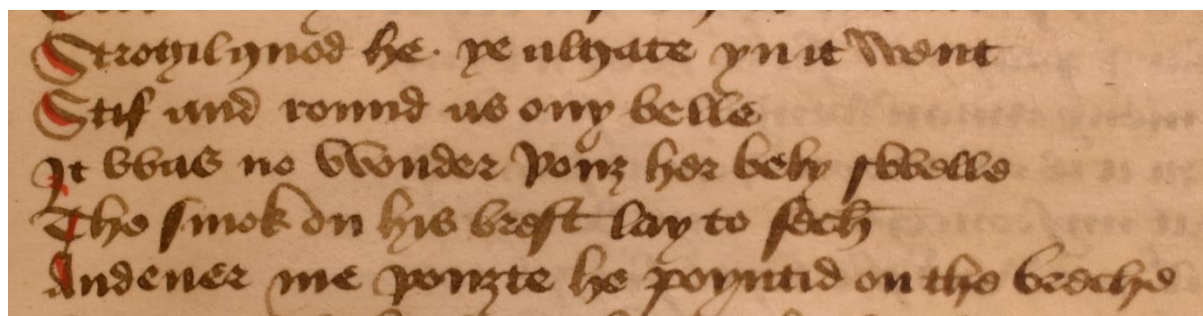 Strogil quod he . ye algate yn it went
Stif and round as ony belle
It was no wonder þouȝ her bely swelle
The smok on his brest lay to sech
And euer me þouȝte he poyntid on the breche